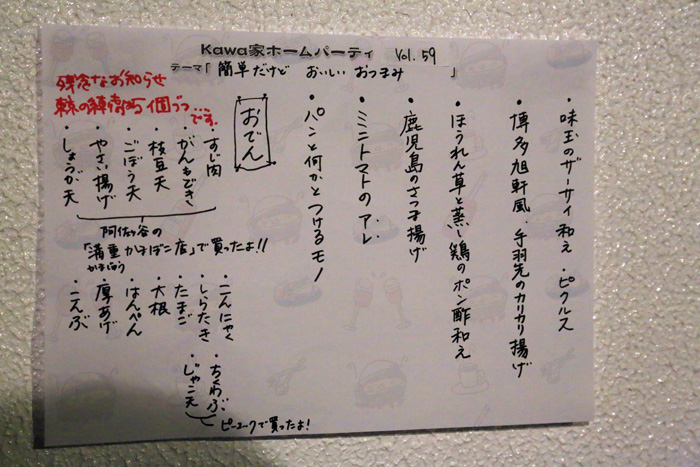 Kawa家ホームパーティ Vol.59
テーマ「簡単だけど おいしい おつまみ」
残念なお知らせ
個づつ…です。
・味玉のザーサイ和え ・ピクルス
・博多旭軒風・手羽先のカリカリ揚げ
・ほうれん草と蒸し鶏のポン酢和え
・鹿児島のさつま揚げ
・ミニトマトのアレ
・パンと何かとつけるモノ
おでん
・すじ肉
・がんもどき
・枝豆天
・ごぼう天
・やさい揚げ
・しょうが天
阿佐ヶ谷の
「蒲重かまぼこ店」で買ったよ!!
かまじゅう
・こんにゃく
・しらたき
・たまご
・大根
・はんぺん
・厚あげ
・こんぶ
・ちくわぶ
・じゃこ天
ピーコックで買ったよ!